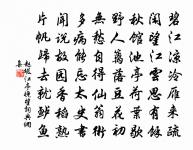 碧江涼冷雁來疏
閒望江雲思有餘
秋館池亭荷葉歇
野人籬落豆花初
無愁自得仙翁術
多病能忘太史書
聞說故園香稻熟
片帆歸去就鱸魚
趙嘏江亭晚望